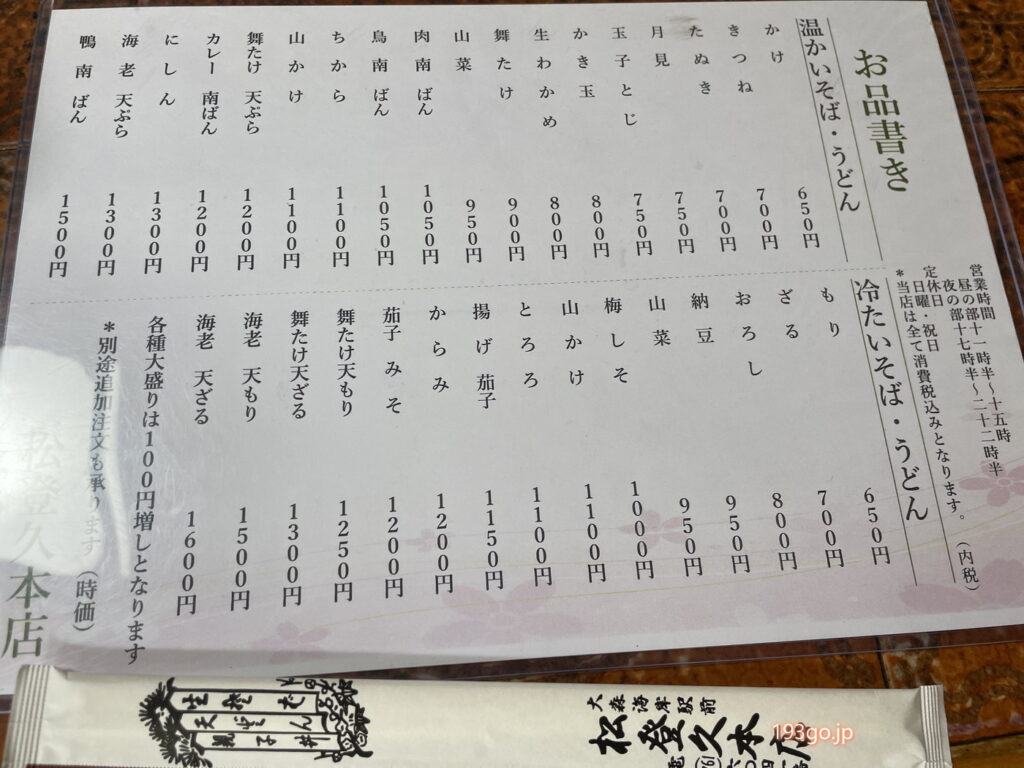 お品書き
営業時間
昼の部十一時半～十五時
夜の部十七時半～二十二時半
定休日 日曜・祝日
＊当店は全て消費税込みとなります。（内税）
温かいそば・うどん
かけ 650円
きつね 700円
たぬき 700円
月見 750円
玉子とじ 750円
かき玉 800円
生わかめ 800円
舞たけ 900円
山菜 950円
肉南ばん 1050円
鳥南ばん 1050円
ちから 1100円
山かけ 1100円
舞たけ 天ぷら 1200円
カレー 南ばん 1200円
にしん 1300円
海老 天ぷら 1300円
鴨南ばん 1500円
冷たいそば・うどん
もり 650円
ざる 700円
おろし 800円
納豆 950円
山菜 950円
梅しそ 1000円
山かけ 1100円
とろろ 1100円
揚げ 茄子 1150円
からみ 1200円
茄子みそ 1200円
舞たけ天もり 1250円
舞たけ天ざる 1300円
海老 天もり 1500円
海老 天ざる 1600円
各種大盛りは100円増しとなります
＊別途追加注文も承ります（時価）
松登久本店
大森海岸駅前
松登久本店
193go.jp